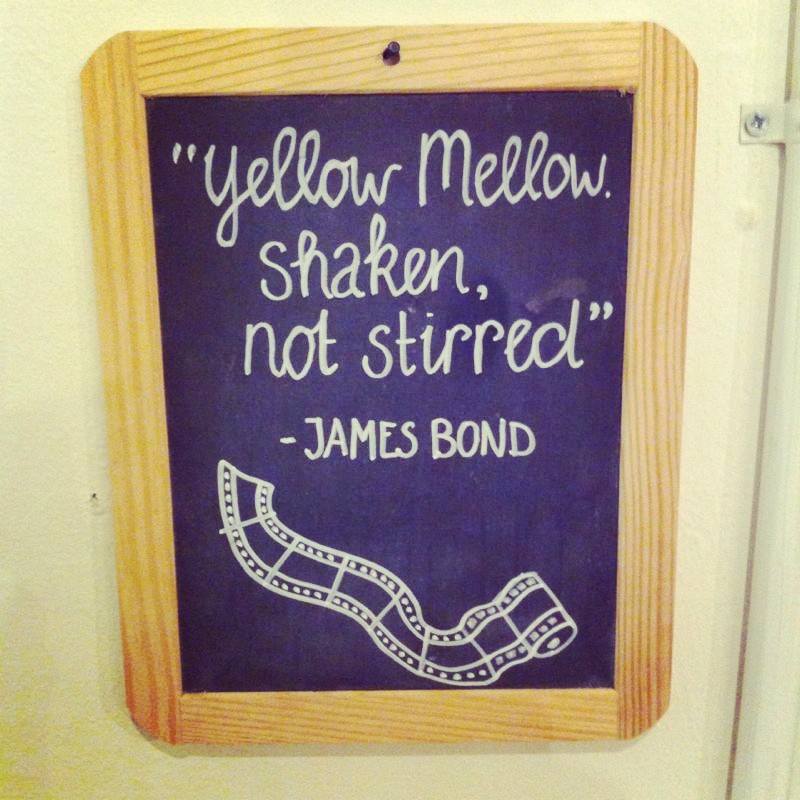 "Yellow Mellow.
shaken,
not stirred"
- JAMES BOND